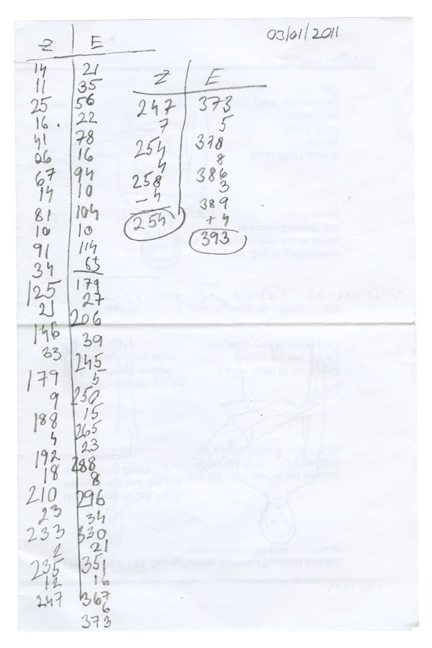 03/01/2011
Z E
14 21
11 35
25 56
16. 22
41 78
26 16
67 94
14 10
81 104
10 10
91 114
34 65
125 179
21 27
206
146 39
33 245
179 5
9 250
15
188 265
4 23
192 288
18 8
210 296
23 34
233 330
2 21
235 351
12 16
247 367
6
373
Z E
247 373
7 5
254 378
4 8
258 386
3
-4 389
254 +4
393